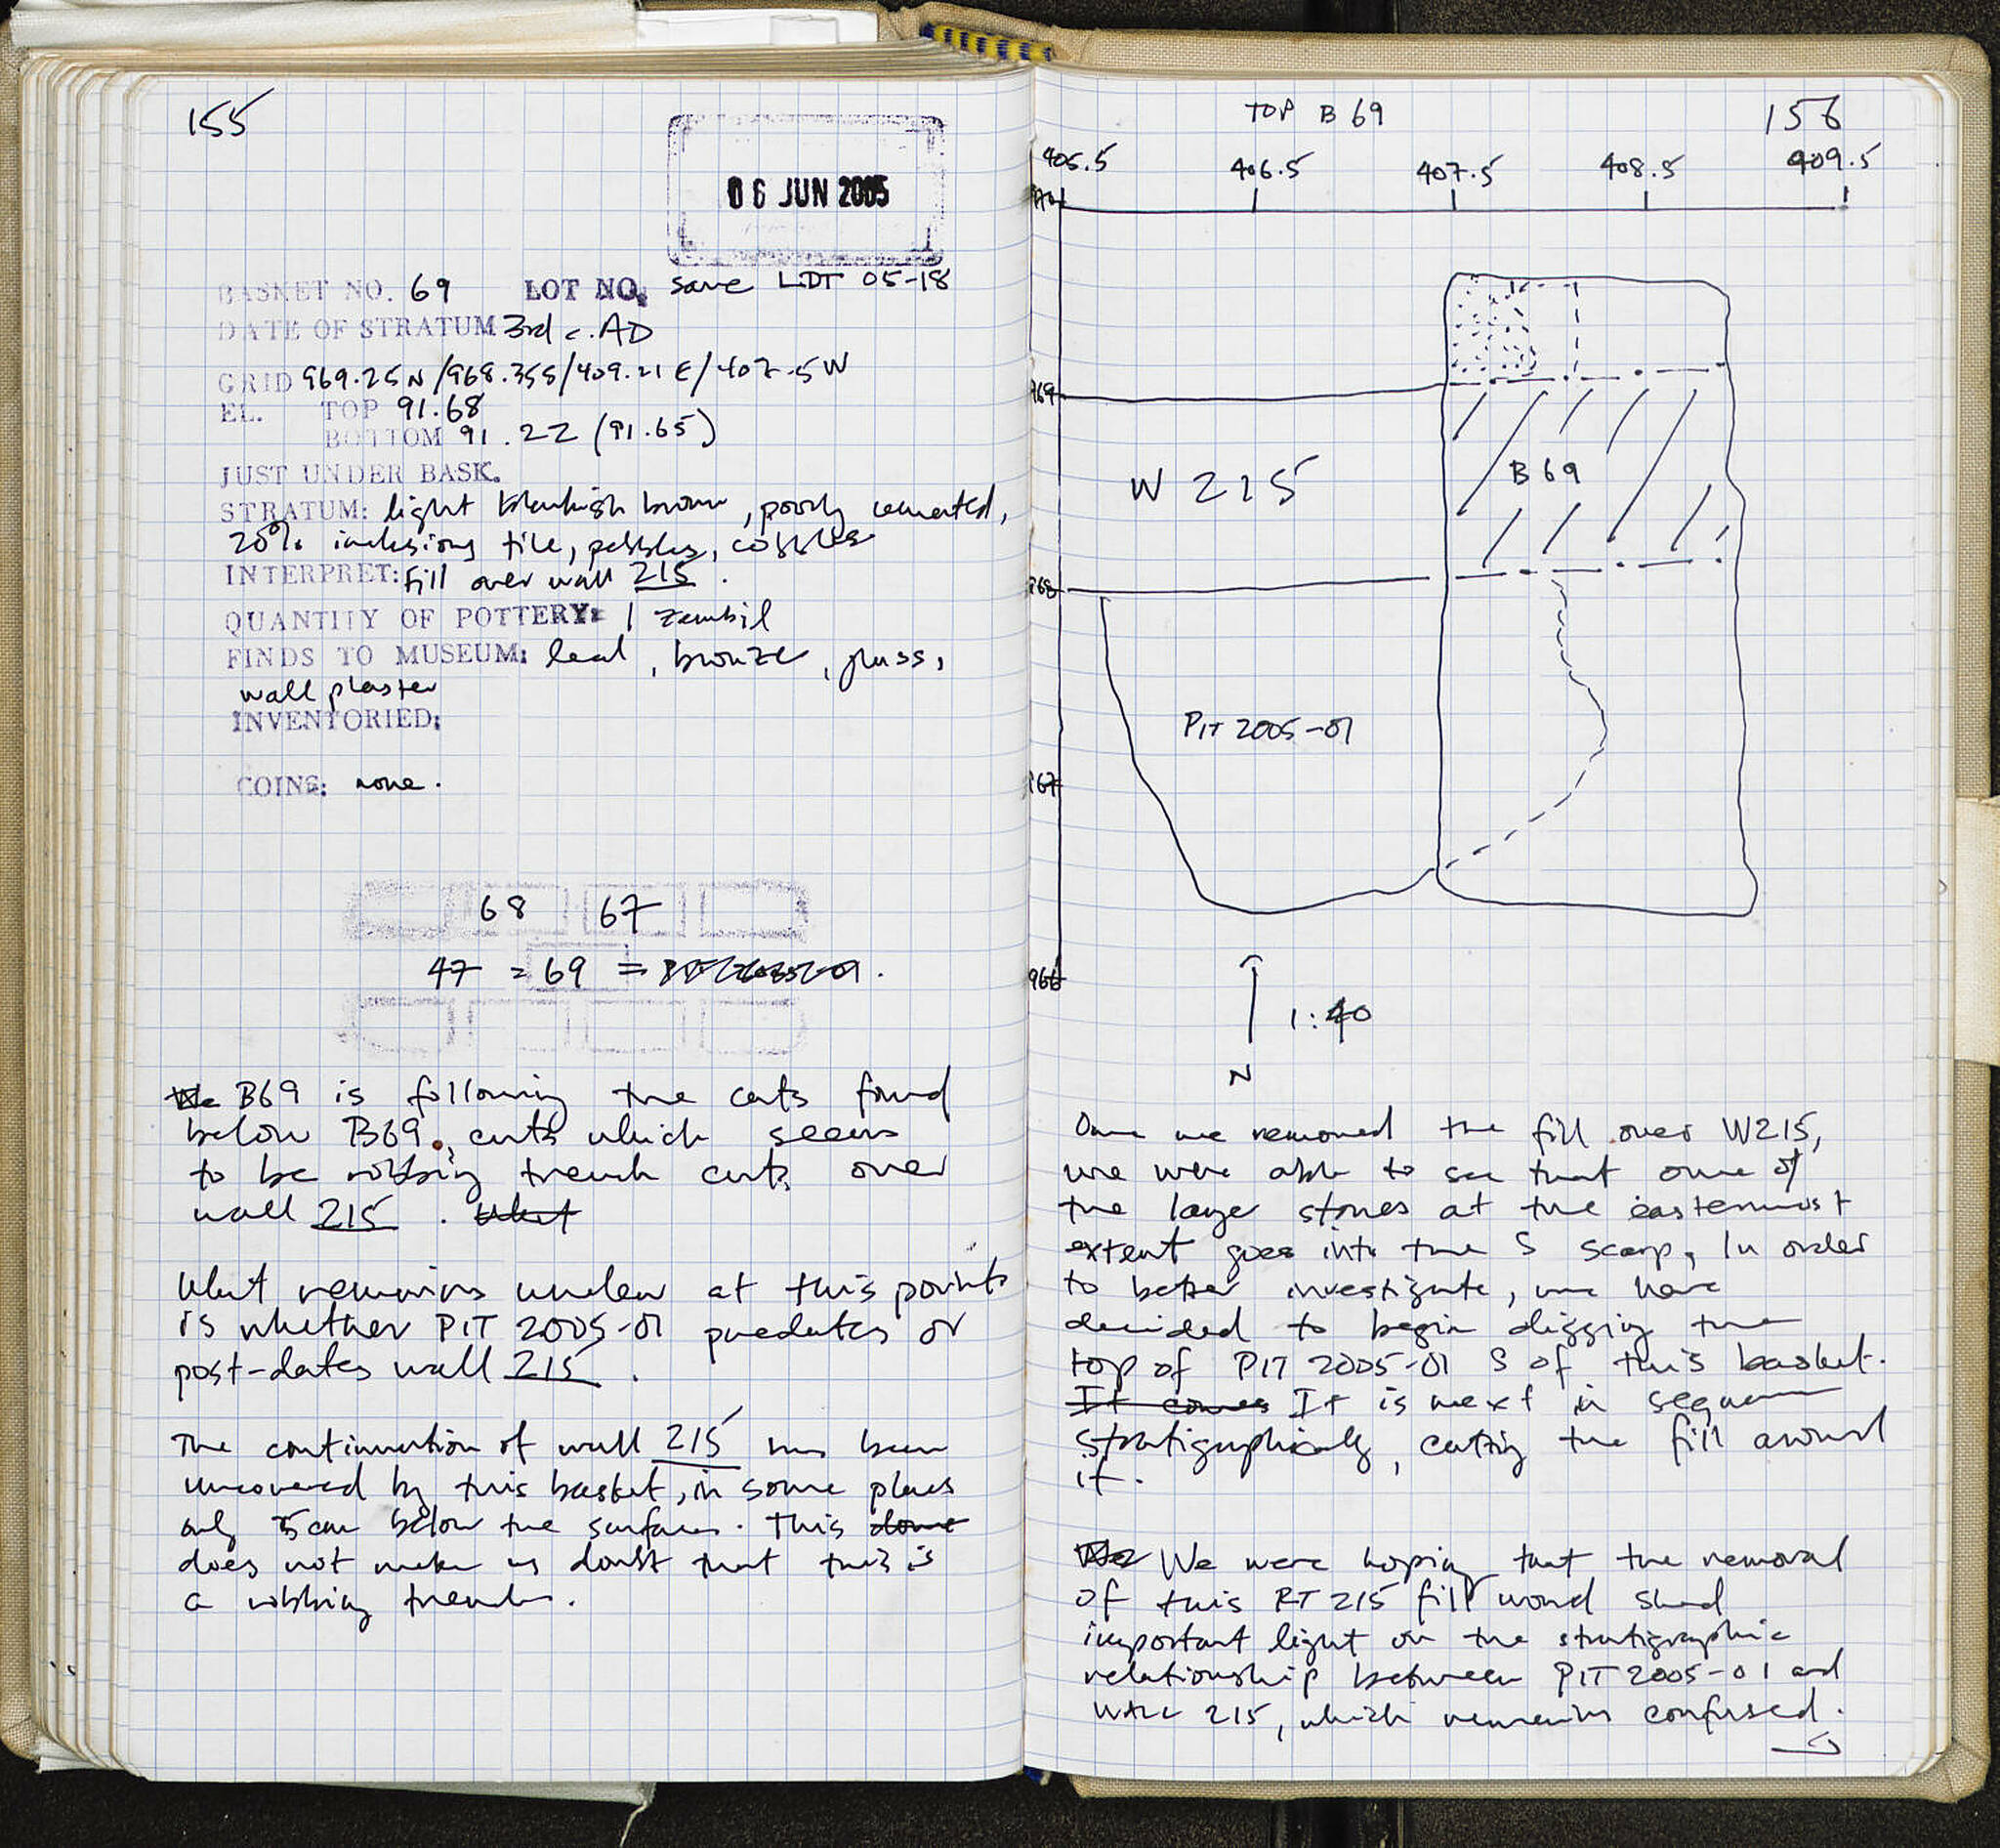 155
06 JUN 2005
BASKET NO. 69 LOT NO. save LDT 05-18
DATE OF STRATUM 3rd c. AD
GRID 969.25N/968.35S/409.21E/407.5W
EL. TOP 91.68
BOTTOM 91.22 (91.65)
JUST UNDER BASK.
STRATUM: light brown, poorly cemented,
20% inclusions tile, pebbles, cobbles
INTERPRET: fill over wall 215.
QUANTITY OF POTTERY: 1 zembil
FINDS TO MUSEUM: lead, bronze, glass,
wall plaster
INVENTORIED:
COINS: none.
68 67
47 = 69 =
B69 is following the cuts found
below B69, cuts which seems
to be robbing trench cuts over
wall 215. What
What remains unclear at this points
is whether PIT 2005-01 predates or
post-dates wall 215.
The continuation of wall 215 has been
uncovered by this basket, in some places
only 5cm below the surface. This
does not make us doubt that this is
a robbing trench.
TOP B 69
156
405.5 406.5 407.5 408.5 409.5
970
969
W 215
B 69
968
PIT 2005-01
967
966
1:40
N
Once we removed the fill over W215,
we were able to see that one of
the large stones at the easternmost
extent goes into the S scarp, In order
to better investigate, we have
decided to begin digging the
top of PIT 2005-01 S of this basket.
It comes It is next in sequence
stratigraphically, cutting the fill around
it.
We were hoping that the removal
of this RT 215 fill would shed
important light on the stratigraphic
relationship between PIT 2005-01 and
WALL 215, which remains confused.